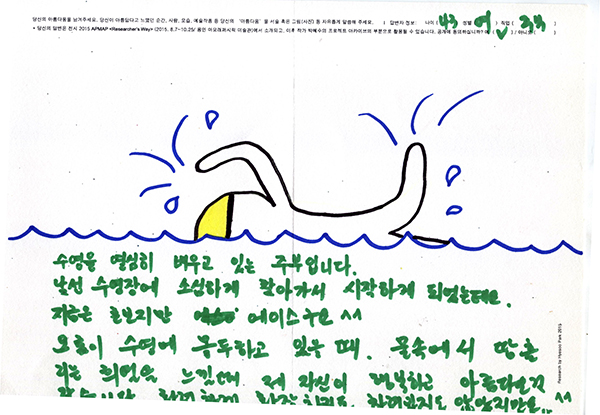 당신의 아름다움을 남겨주세요. 당신이 아름답다고 느꼈던 순간, 사람, 모습, 예술작품 등 당신의 "아름다움"을 서술 혹은 그림(사진) 등 자유롭게 말씀해 주세요. ) 답변자 정보: 나이 ( 43 성별 ( 여 ) 직업 ( 주부
* 당신의 답변은 전시 2015 APMAP <Researcher's Way> (2015. 8.7~10.25/ 용인 아모레퍼시픽 미술관)에서 소개되고, 이후 작가 박혜수의 프로젝트 아카이브의 부분으로 활용될 수 있습니다. 공개에 동의하십니까? 예 ( ) / 아니오 (
수영을 열심히 배우고 있는 주부입니다.
낯선 수영장에 소심하게 찾아가서 시작하게 되었는데.
지금은 초보지만 에이스구요 ^^
오롯이 수영에 몰두하고 있을 때. 물속에서 땀흘
리는 희열을 느낄때 제 자신이 행복하고 아름다운지
^^
Research by Hyesoo Park 2015